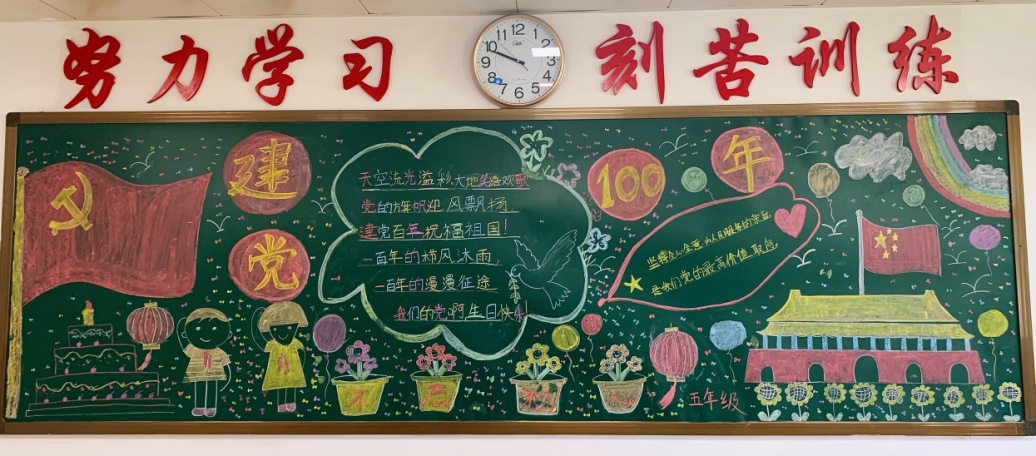 努力学习 刻苦训练
建党
100年
天空流光溢彩,大地笑语欢歌
党的旗帜迎风飘扬,
建党百年祝福祖国!
一百年的栉风沐雨,
一百年的漫漫征途
我们的党啊生日快乐!
坚持全心全意为人民服务的宗旨
是我们党的最高价值取向.
五年级